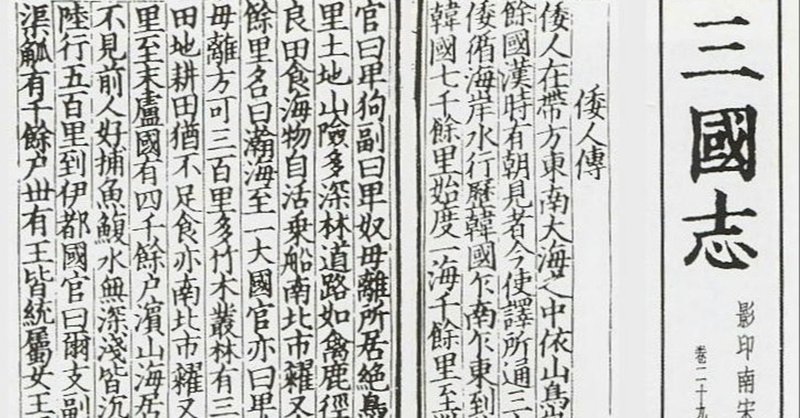 三國志
影印南宋
卷二十
倭人傳
倭人在帶方東南大海之中依山島
餘國漢時有朝見者今使譯所通三
倭循海岸水行歷韓國乍南乍東到
韓國七千餘里始度一海千餘里至
官曰卑狗副曰卑奴毋離所居絶島
里土地山險多深林道路如禽鹿徑
良田食海物自活乗船南北市糴又
餘里名曰瀚海至一大國官亦曰卑
毋離方可三百里多竹木叢林有三
田地耕田猶不足食亦南北市糴又
里至末盧國有四千餘户濵山海居
不見前人好捕魚鰒水無深淺皆沉
陸行五百里到伊都國官曰爾支副
渠觚有千餘户丗有王皆統屬女王